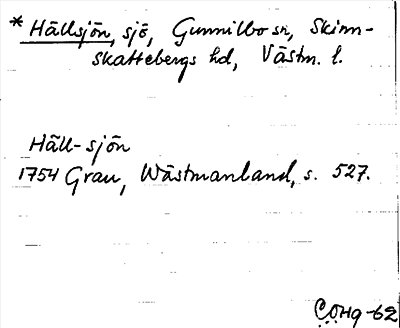 * Hällsjön, sjö, Gunnilbo sn, Skinn-
skattebergs hd, Västm. l.
Häll-sjön
1754 Grau, Wästmanland, s. 527.
COHg-62